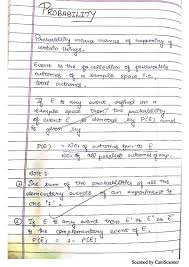 PROBABILITY
Probability means chances of happening of
certain things.
Event is the collection of favourable
outcomes of a sample space i.e.
total outcomes.
If E is any event defined on a
sample space then the probability
of event E is denoted by P(E) and
is given by
P(E) = No. of outcomes fav. to E
No. of all possible outcomes
Note :-
① The sum of the probabilities of all the
elementary events of an experiment is
one '1'
② If E is any event then E' or Ē or
is the complementary event of E.
P(E) = 1 - P(E)
Scanned by CamScanner